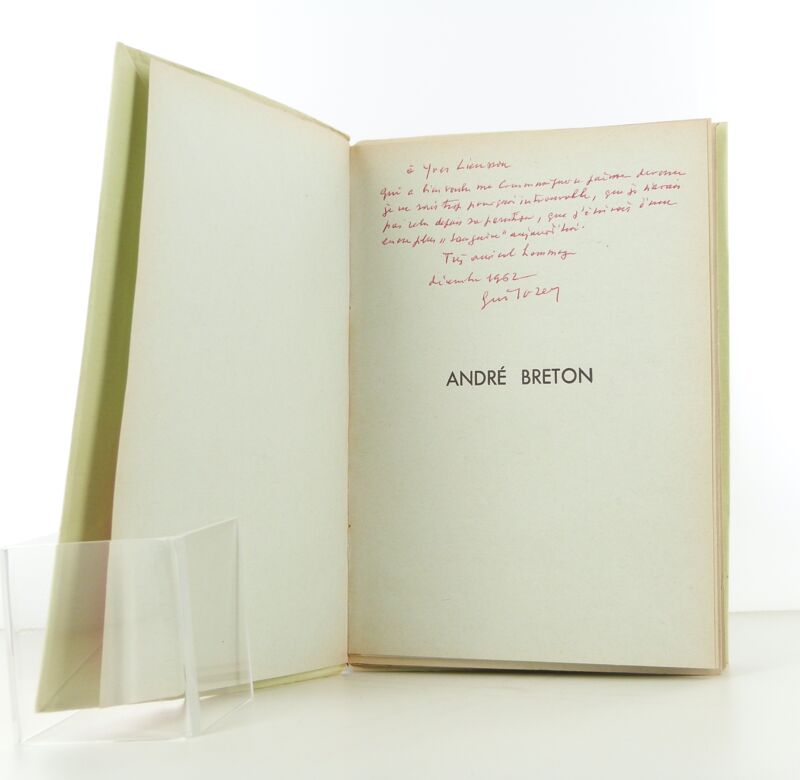 à Yves
qui a bien voulu me communiquer ce poème devenu
je ne sais trop pourquoi introuvable, que je n'avais
pas relu depuis sa parution, que
encore plus " " aujourd'hui.
Très amical hommage
décembre 1962
ANDRÉ BRETON